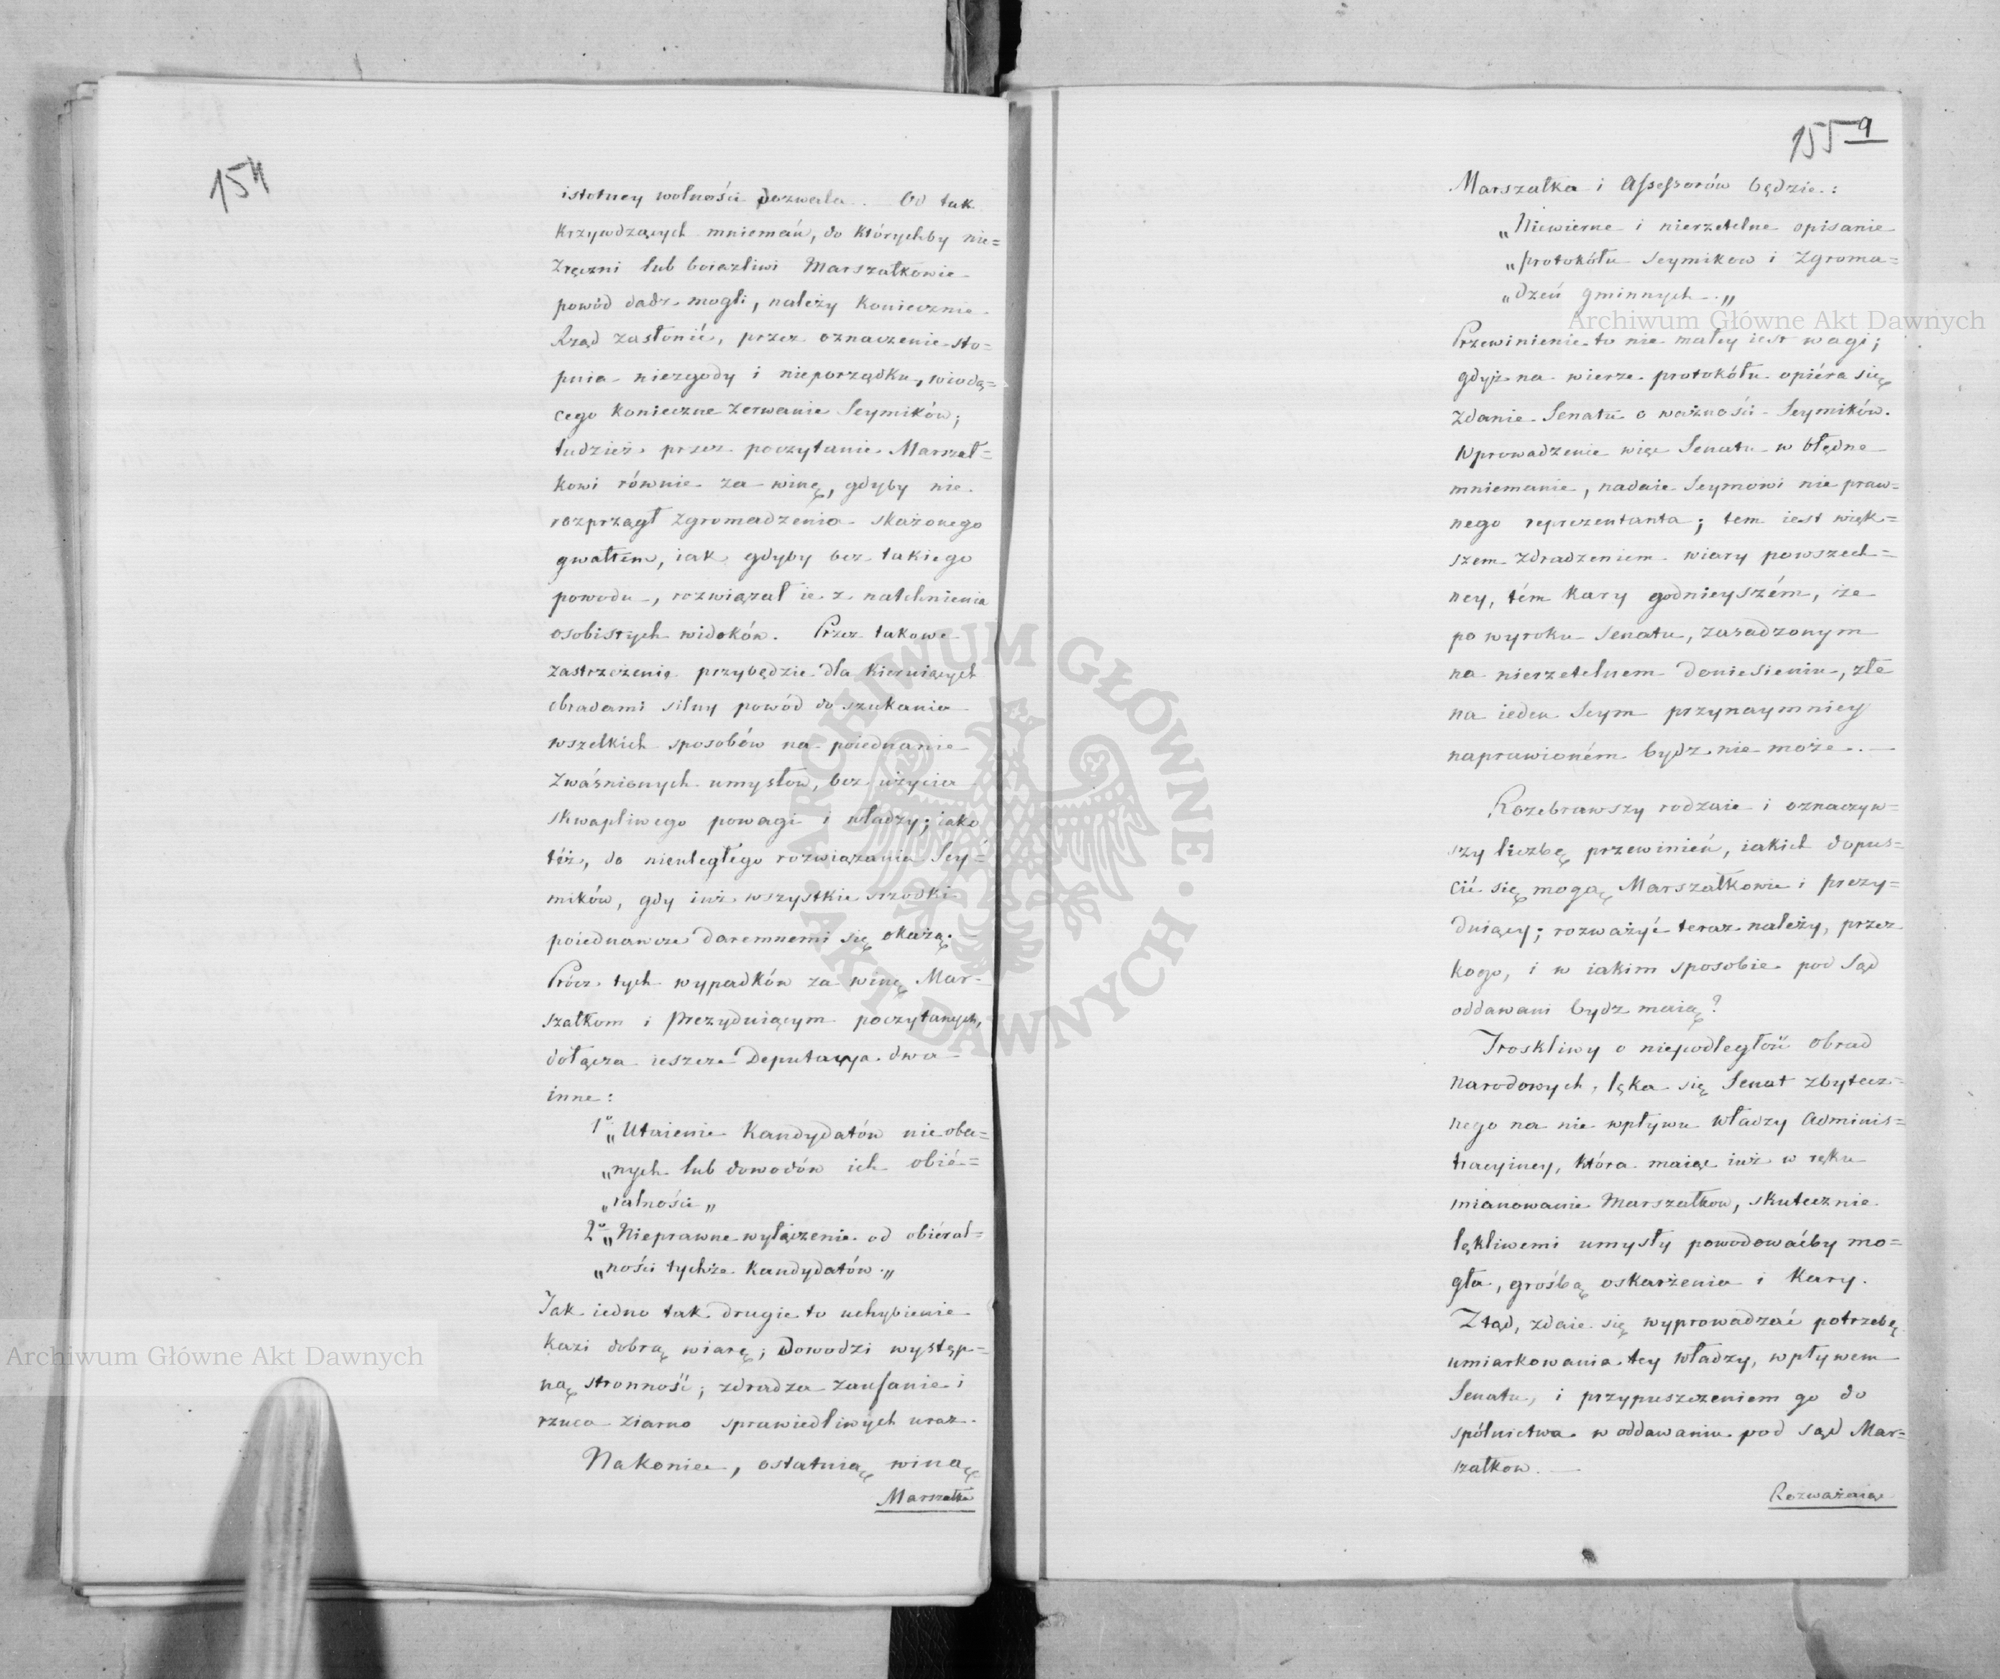 154
istotney wolności dozwala. Od tak
krzywdzących mniemań, do którychby nie=
zręczni lub boiaźliwi Marszałkowie
powód dadź mogli, należy koniecznie
Rząd zasłonić, przez oznaczenie sto=
pnia niezgody i nieporządku, wiodą=
cego konieczne zerwanie Seymików;
tudzież przez poczytanie Marszał=
kowi równie za winę, gdyby nie
rozprzągł zgromadzenia skażonego
gwałtem, iak gdyby bez takiego
powodu, rozwiązał ie z natchnienia
osobistych widoków. Przez takowe
zastrzeżenie przybędzie dla kieruiących
obradami silny powód do szukania
wszelkich sposobów na poiednanie
zwaśnionych umysłów, bez użycia
skwapliwego powagi i władzy; iako
téż, do nieuległégo rozwiązania Sey=
mików, gdy iuż wszystkie srzodki
poiednawcze daremnemi się okażą.
Prócz tych wypadków za winę Mar=
szałkom i Prezyduiącym poczytanych,
dołącza ieszcze Deputacya dwa
inne:
1° „Utaienie Kandydatów nie obra=
„nych lub dowodów ich obié=
„ralności„
2° „Nieprawne wyłączenie od obiéral=
„ności tychże Kandydatów.„
Jak iedno tak drugie to uchybienie
kazi dobrą wiarę; dowodzi występ=
ną stronność; zdradza zaufanie i
rzuca ziarno sprawiedliwych uraz.
Nakoniec, ostatnią winą
Marszałka
155 9
Marszałka i Assessorów będzie:
„Niewierne i nierzetelne opisanie
„protokółu Seymików i Zgroma=
„dzeń gminnych.„
Przewinienie to nie małey iest wagi;
gdyż na wierze protokółu opiéra się
zdanie Senatu o ważności Seymików.
Wprowadzenie więc Senatu w błędne
mniemanie, nadaie Seymowi nie praw=
nego reprezentanta; tem iest więk=
szem zdradzeniem wiary powszech=
ney, tém kary godnieyszém, że
po wyroku Senatu, zasadzonym
na nierzetelnem doniesieniu, złe
na ieden Seym przynaymniey
naprawioném bydz nie może.
Rozebrawszy rodzaie i oznaczyw=
szy liczbę przewinień, iakich dopus=
cić się mogą Marszałkowie i prezy=
duiący; rozważyć teraz należy, przez
kogo, i w iakim sposobie pod Sąd
oddawani bydz maią?
Troskliwy o niepodległość obrad
narodowych, lęka się Senat zbytecz=
nego na nie wpływu władzy Adminis=
tracyiney, która maiąc iuż w ręku
mianowanie Marszałków, skutecznie
lękliwemi umysły powodowaćby mo=
gła, groźbą oskarżenia i kary.
Ztąd, zdaie się wyprowadzać potrzebę
umiarkowania tey władzy, wpływem
Senatu, i przypuszczeniem go do
spólnictwa w oddawaniu pod sąd Mar=
szałków.
Rozważaiąc
Archiwum Główne Akt Dawnych
Archiwum Główne Akt Dawnych
ARCHIWUM GŁÓWNE · AKT DAWNYCH ·